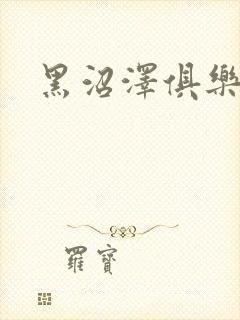 黑沼澤俱樂
羅寶